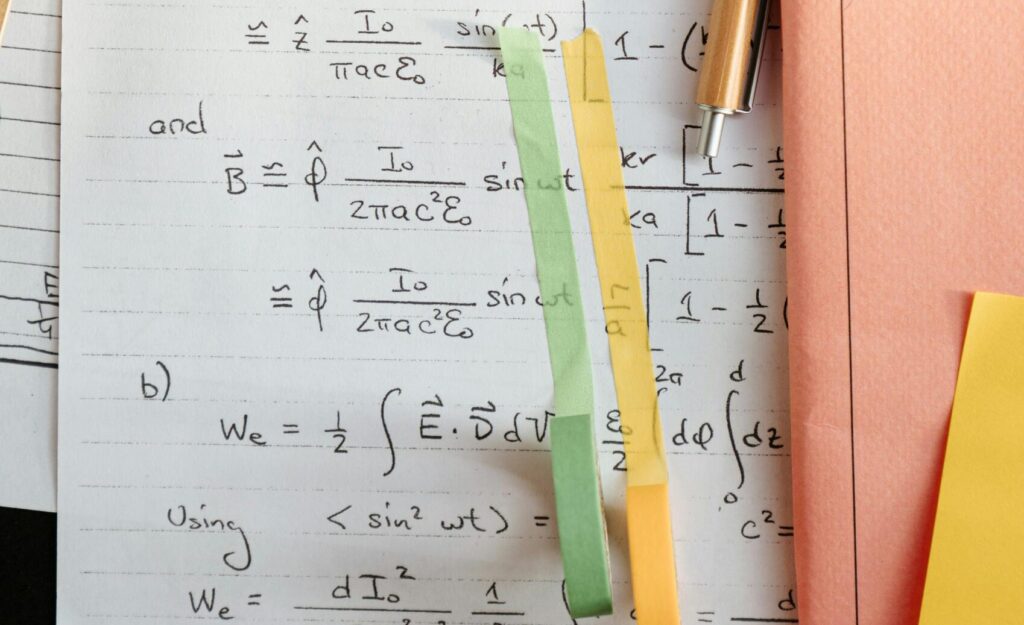 ≅ ẑ I₀/(πacε₀) sin(ωt)/ka 1 - (
and
B⃗ ≅ φ̂ I₀/(2πac²ε₀) sin ωt kr [1 - 1/2 / ka [1 - 1/2
≅ φ̂ I₀/(2πac²ε₀) sin ωt r/a [1 - 1/2 (
b)
We = 1/2 ∫ E⃗ · D⃗ dV ε₀/2 ∫ 2π dφ ∫₀ᵈ dz
Using < sin² ωt > = c² =
We = d I₀² 1 = d